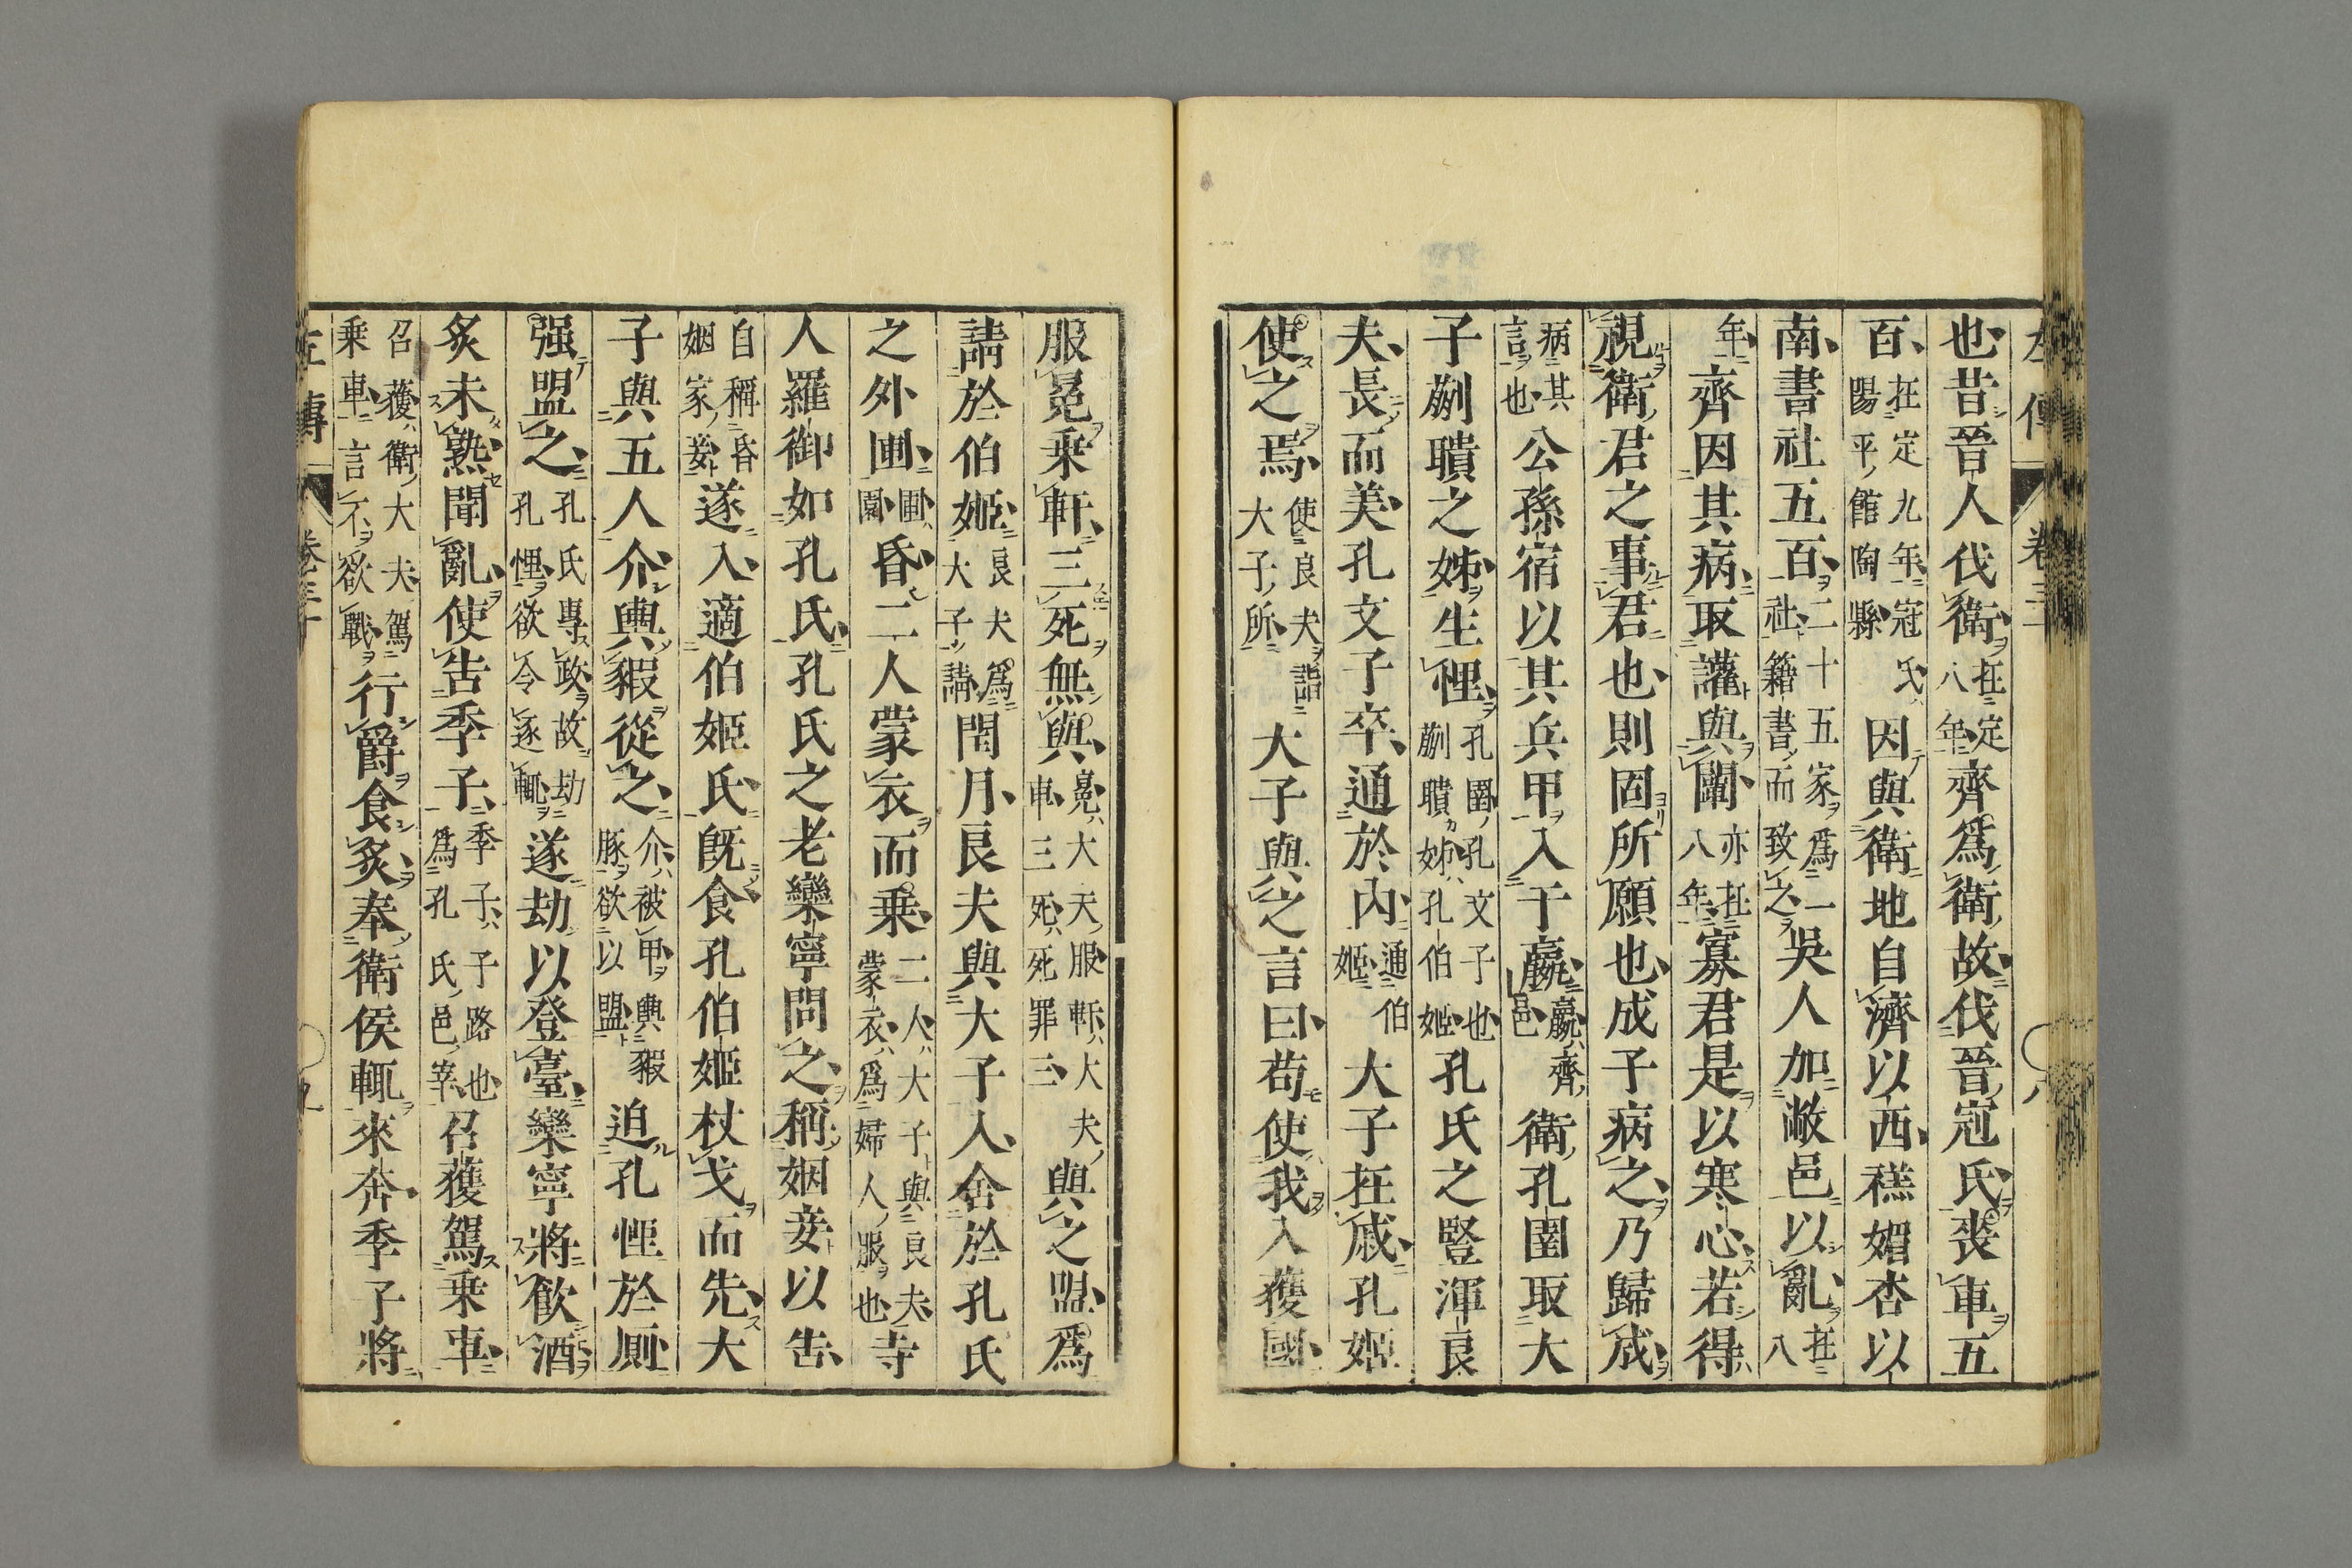 也昔晉人伐衛在定八年齊爲衛故伐晉冠氏喪車五
百在定九年冠氏陽平館陶縣因與衛地自濟以西禚媚杏以
南書社五百二十五家爲一社籍書而致之吳人加敝邑以亂在八
年齊因其病取讙與闡亦在八年寡君是以寒心若得
視衛君之事君也則固所願也成子病之乃歸成
病其言也公孫宿以其兵甲入于嬴嬴齊邑衛孔圉取大
子蒯聵之姊生悝孔圉孔文子也蒯聵姊孔伯姬孔氏之豎渾良
夫長而美孔文子卒通於內通伯姬大子在戚孔姬
使之焉使良夫詣大子所大子與之言曰苟使我入獲國
服冕乘軒三死無與冕大夫服軒大夫車三死死罪三與之盟爲
請於伯姬良夫爲大子請閏月良夫與大子入舍於孔氏
之外圃圃園昏二人蒙衣而乘二人大子與良夫蒙衣爲婦人服也寺
人羅御如孔氏孔氏之老欒寧問之稱姻妾以告
自稱昏姻家妾遂入適伯姬氏既食孔伯姬杖戈而先大
子與五人介輿豭從之介被甲輿豭豚欲以盟迫孔悝於廁
强盟之孔氏專政故劫孔悝欲令逐輒遂劫以登臺欒寧將飲酒
炙未熟聞亂使告季子季子子路也爲孔氏邑宰召獲駕乘車
召獲衛大夫駕乘車言不欲戰行爵食炙奉衛侯輒來奔季子將